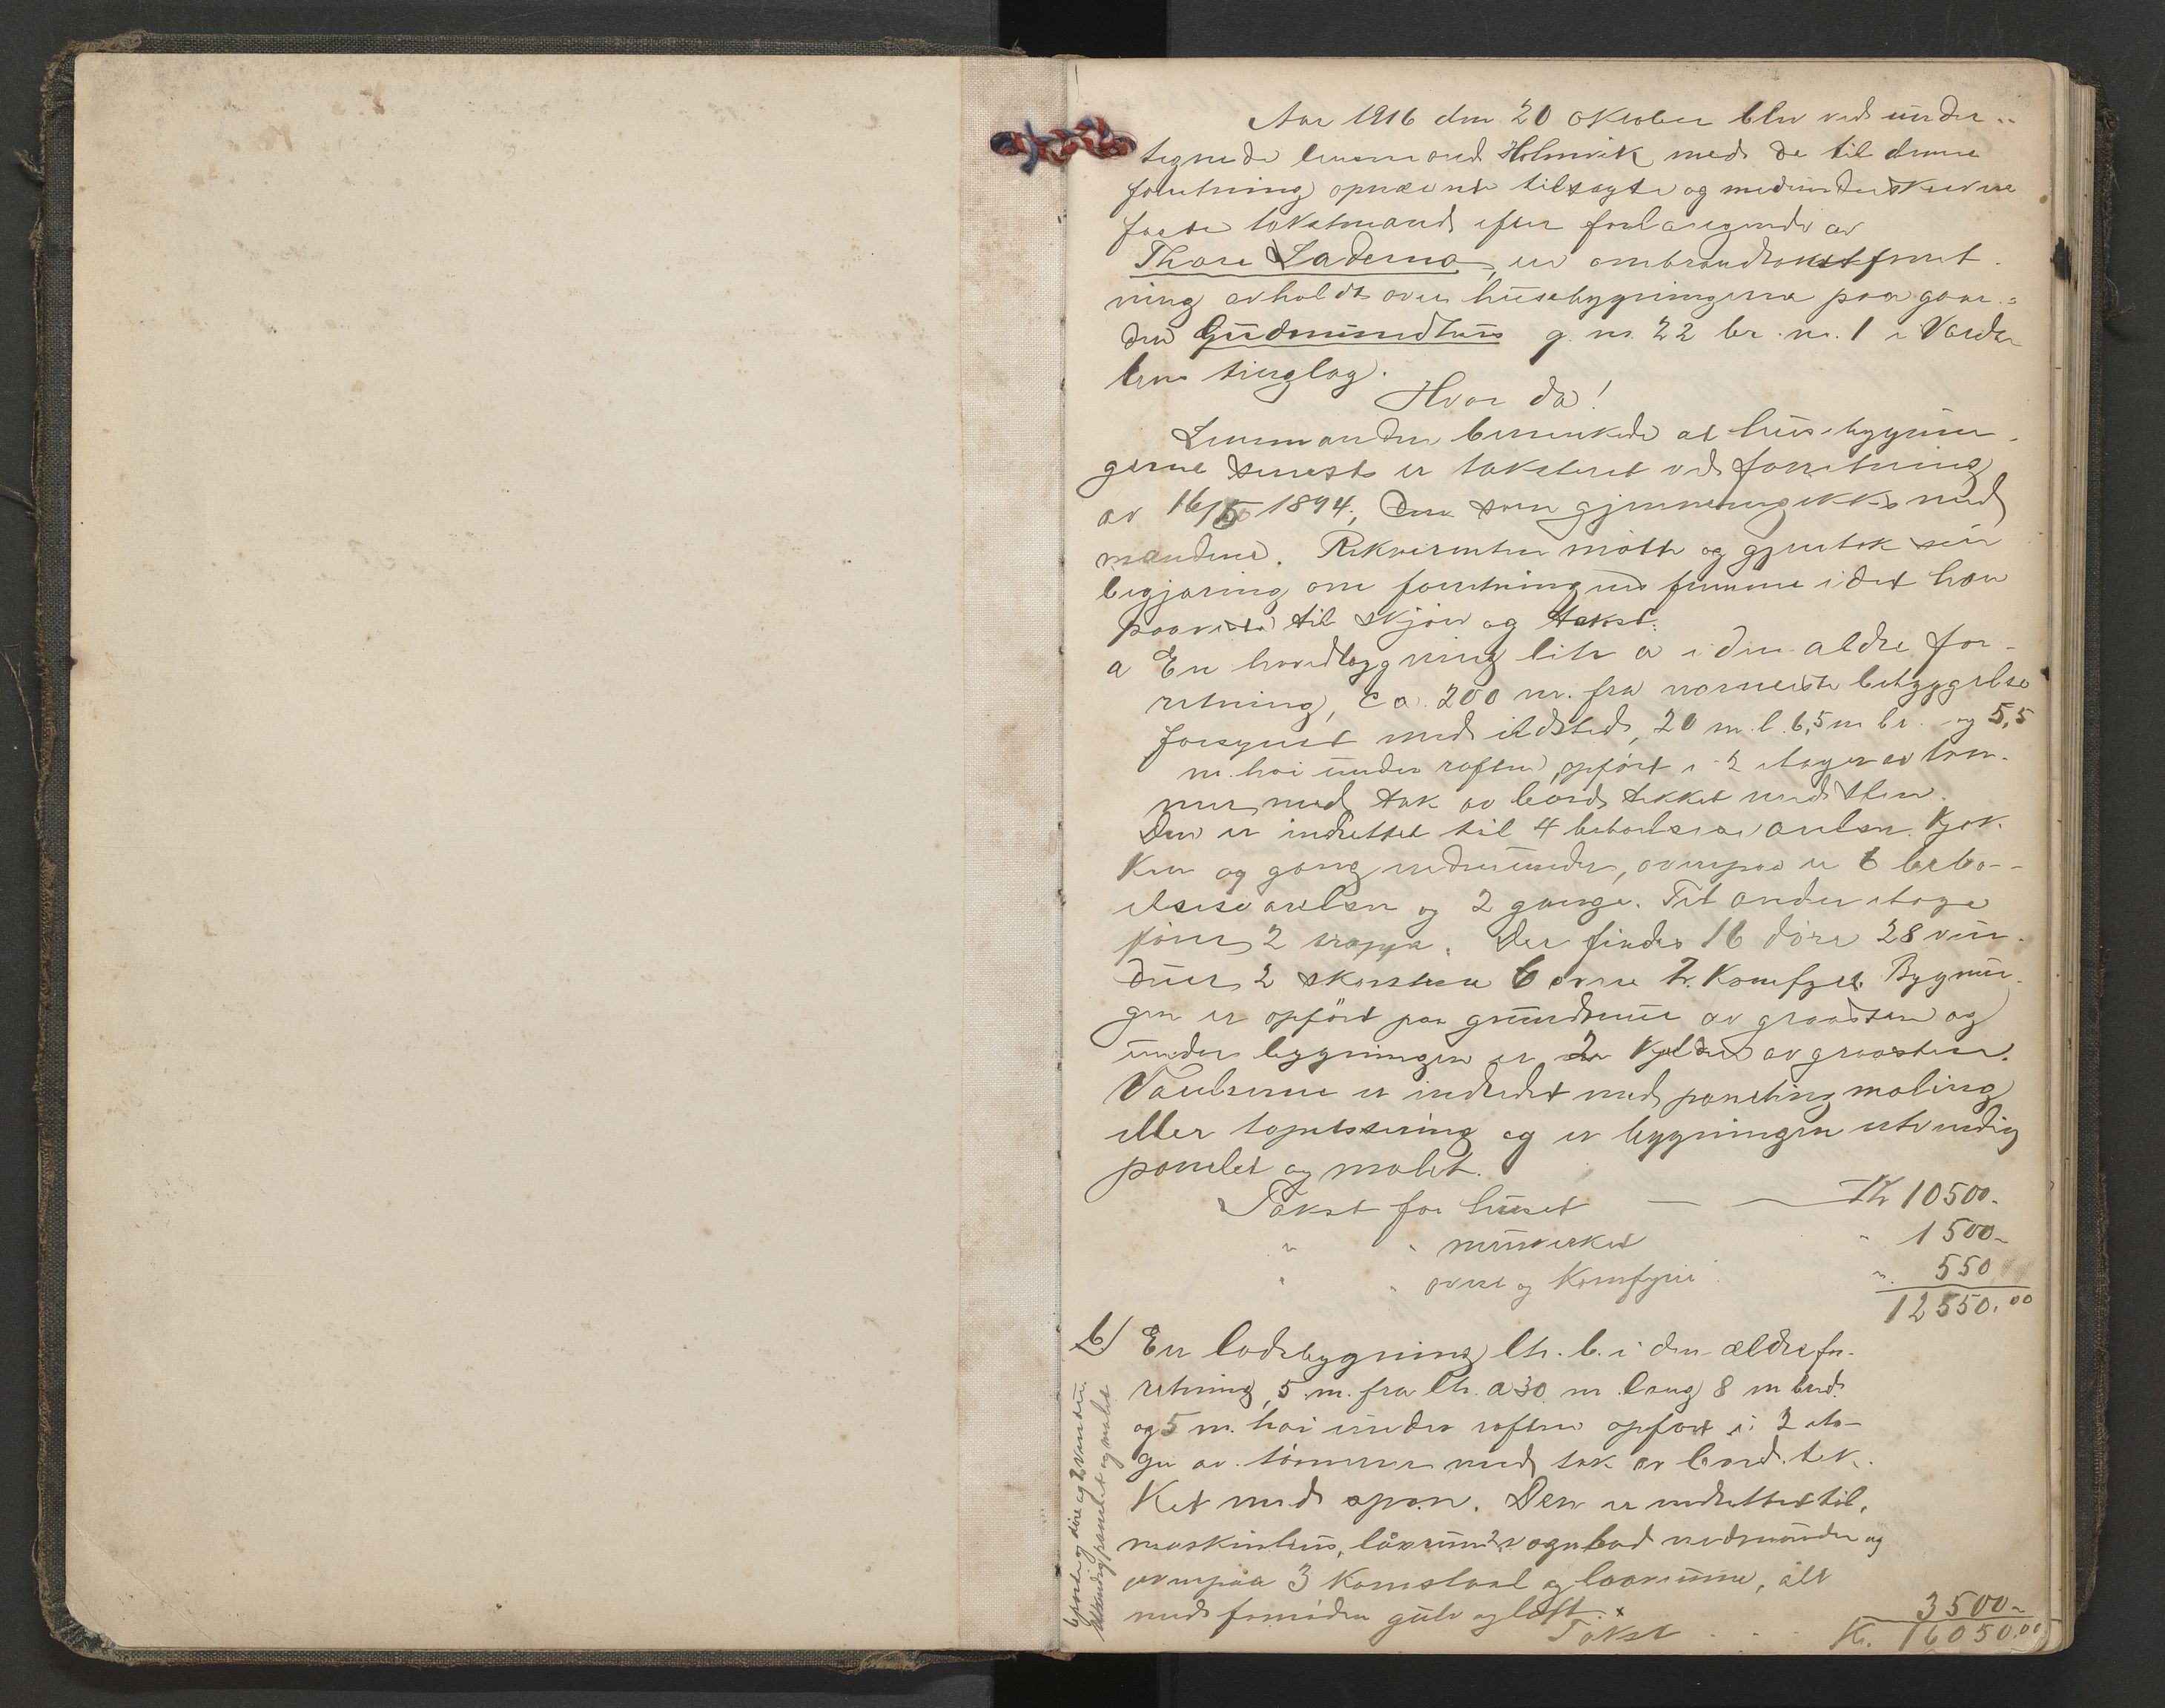 Aar 1916 den 20 oktober blev ved under-
tegnede lensmand Holmvik med de til denne
forretning opnævnte tilsagte og medunderskrevne
faste takstmænd efter forlangende av
Thore Laderna en ombrandtakstforret-
ning avholdt over husebygningerne paa gaar-
den Gudmundhus g. nr. 22 br. nr. 1 i Værda-
lens tinglag.
Hvor da!
Lensmanden bemerkede at husebygnin-
gerne senest er taksteret ved forretning
av 16/5 1894, den som gjennemgikkes med
mændene. Rekvirenten møtte og gjentok sin
begjæring om forretningens fremme idet han
paaviste til skjøn og takst:
a En hovedbygning litr a i den ældre for-
retning, ca. 200 m. fra nærmeste bebyggelse
forsynet med ildsted, 20 m. l. 6,5 m br. og 5,5
m. høi under raften, opført i 2 etager av tøm-
mer med tak av bord tekket med sten.
Den er indrettet til 4 beboelsesværelser. kjøk-
ken og gang nedenunder, ovenpaa er 6 bebo-
elsesværelser og 2 gange. Til anden etage
fører 2 trapper. Der findes 16 døre 28 vin-
duer 2 skorstene 6 ovne 2 komfyrer. Bygnin-
gen er opført paa grundmur av graasten og
under bygningen er 2 kjeldere av graasten.
Værelserne er indredet med paneling maling
eller tapetsering og er bygningen utvendig
panelet og malet.
Takst for huset — — Kr 10500-
" " murverket " 1500-
" " ovne og komfyrer " 550
12550.00
b) En ladebygning ltr. b. i den ældre for-
retning, 5 m. fra ltr. a 30 m lang 8 m bred
og 5 m. høi under raften opført i 2 eta-
ger av tømmer med tak av bord tek-
ket med spon. Den er indrettet til
maskinhus, låverum 2 vognbod nedenunder og
ovenpaa 3 kornstaal og laaverum, alt
med fornøden gulv og loft. x 3500-
Takst - - - Kr. 16050.00
6 porter og døre og 2 vinduer.
Utvendig panelet og malet